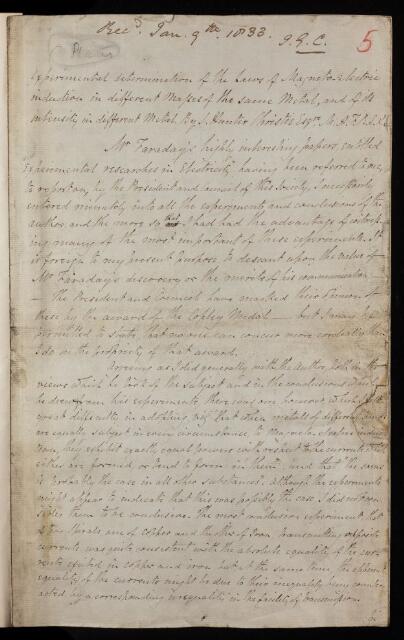 Rec.d Jan. 9th 1833. J.G.C.
5
Experimental determination of the Laws of Magneto-Electric
induction in different Masses of the same Metal, and of its
intensity in different Metals. By S. Hunter Christie Esqr. M.A. F.R.S. &c
Mr Faraday's highly interesting papers, entitled
Experimental researches in Electricity having been referred to me,
to report on, by the President and Council of this Society, I necessarily
entered minutely into all the experiments and conclusions of the
author, and the more so that I had had the advantage of witness-
ing many of the most important of these experiments. It
is foreign to my present purpose to descant upon the value of
Mr Faraday's discovery or the merits of his communication
The President and Council have marked their sense of
these by the award of the Copley Medal — but I may be
permitted to state that no one can concur more cordially than
I do in the propriety of that award.
Agreeing as I did generally with the author, both in the
views which he took of the subject and in the conclusions which
he drew from his experiments there was one however which I felt
great difficulty in adopting viz that when metals of different kinds
are equally subject in every circumstance, to Magneto-electric induc-
tion, they exhibit exactly equal powers with respect to the currents which
either are formed or tend to form in them, and that the same
is probably the case in all other substances. Although the experiments
might appear to indicate that this was possibly the case I did not con-
sider them to be conclusive. The most conclusive experiment, that
of two spirals one of copper and the other of Iron transmitting opposite
currents was quite consistent with the absolute equality of the cur-
rents excited in copper and iron but at the same time the apparent
equality of the currents might be due to their inequality being counter-
acted by a corresponding inequality in the facility of transmission.